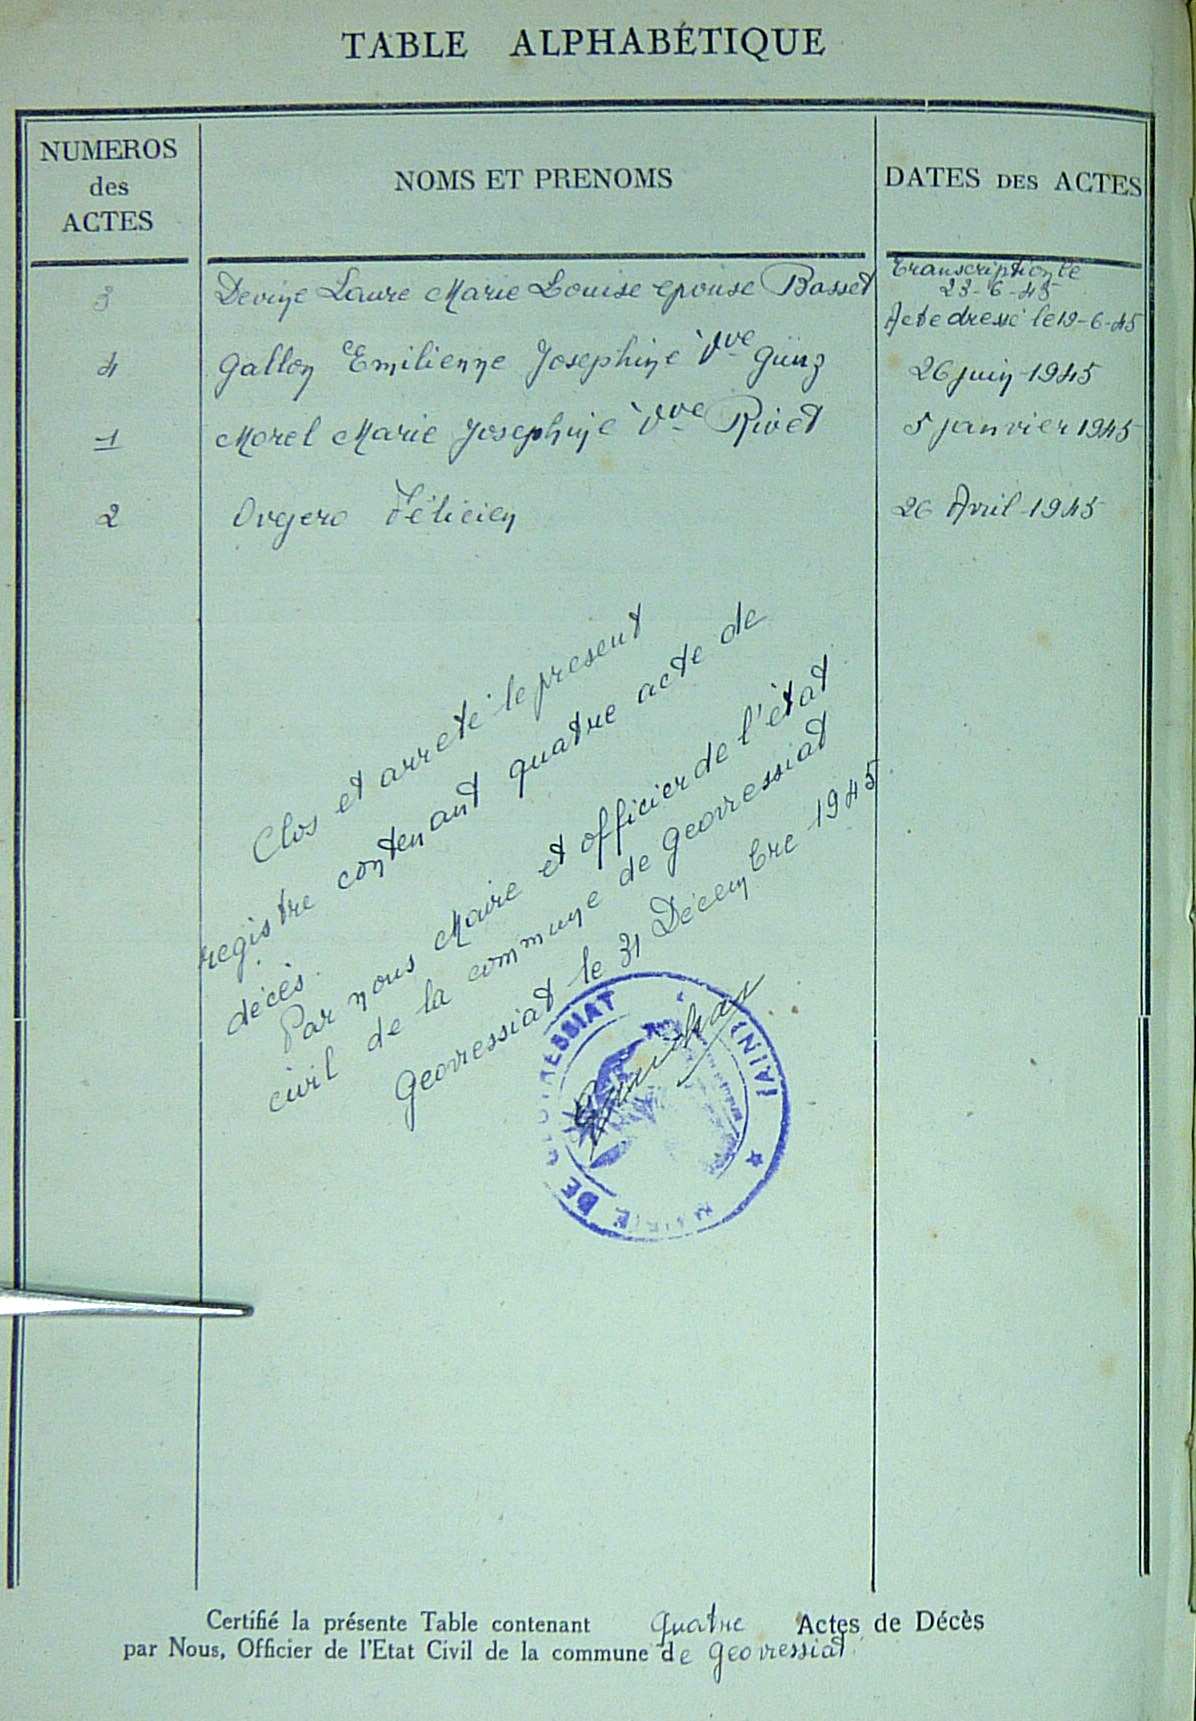 TABLE ALPHABÉTIQUE
NUMEROS
des
ACTES
NOMS ET PRENOMS
DATES DES ACTES
3 Laure Marie Louise epouse Basset Transcription le
23-6-45
Acte dressé le 19-6-45
4 Gallon Emilienne Josephine Vve Günz 26 juin 1945
1 Morel Marie Josephine Vve Rivet 5 janvier 1945
2 Orgero Félicien 26 Avril 1945
Clos et arreté le present
registre contenant quatre acte de
décès.
Par nous Maire et officier de l'état
civil de la commune de Geovressiat
Geovressiat le 31 Décembre 1945
MAIRIE DE GEOVRESSIAT (AIN)
Certifié la présente Table contenant quatre Actes de Décès
par Nous, Officier de l'Etat Civil de la commune de Geovressiat